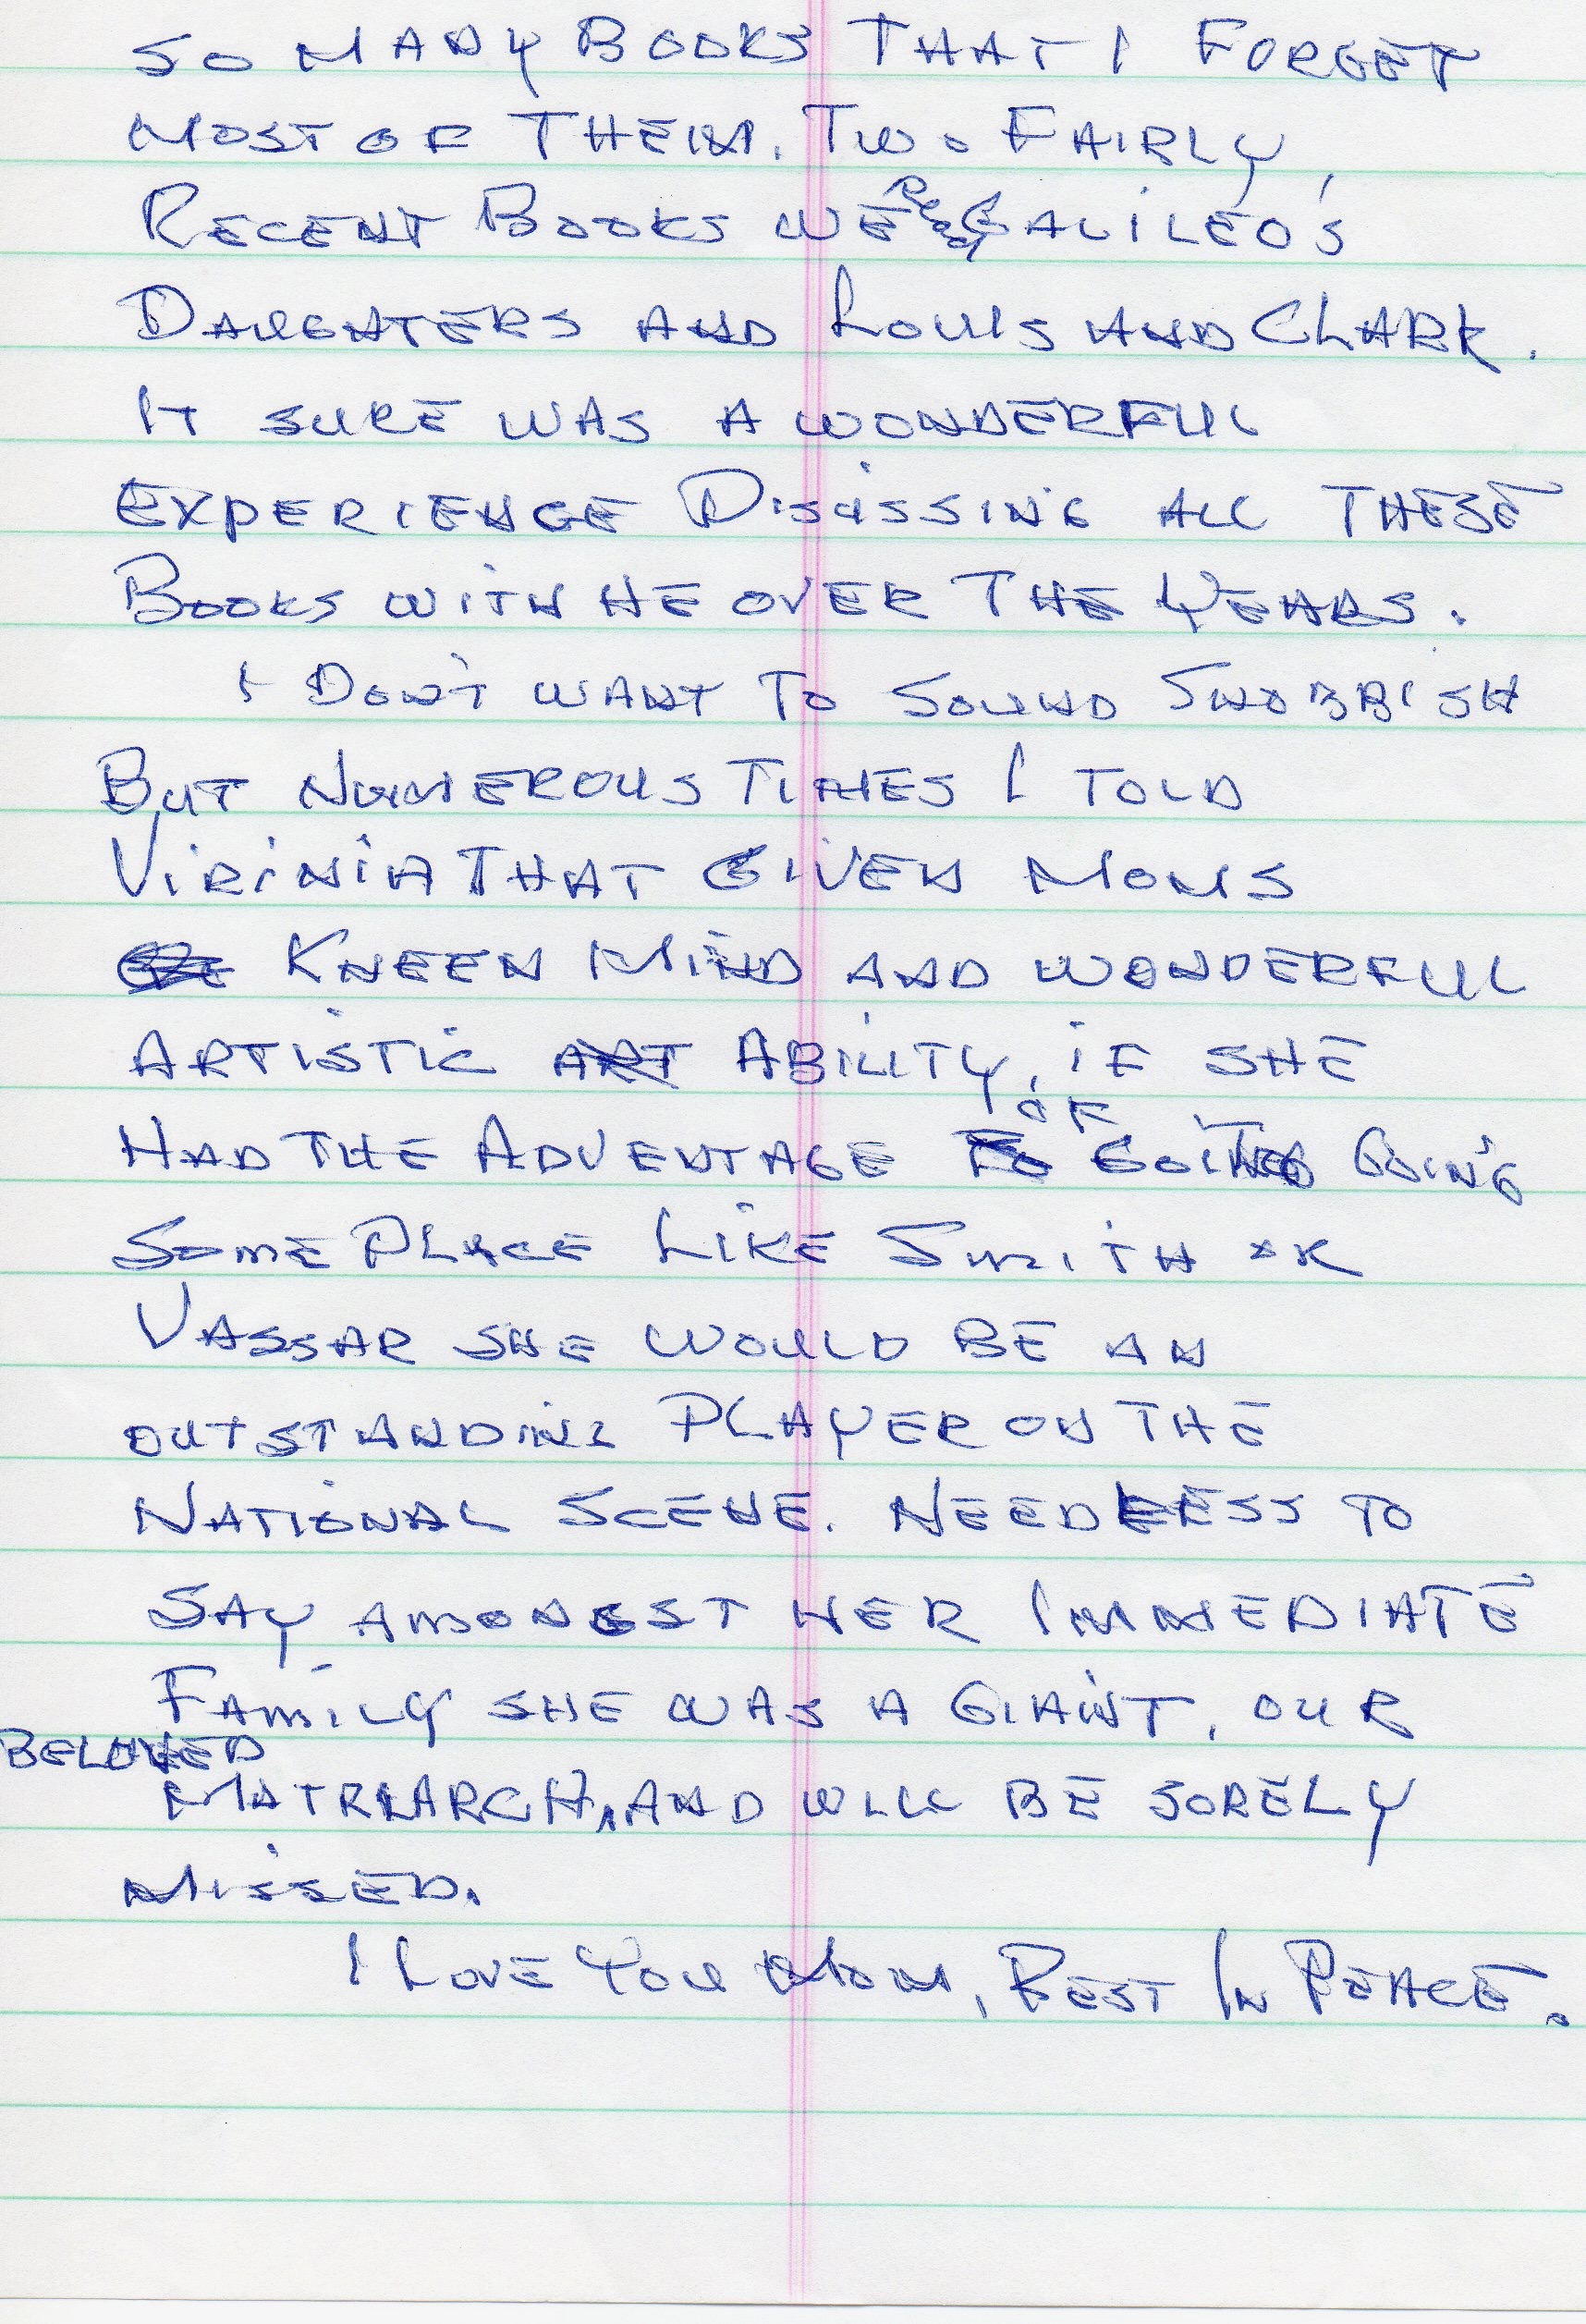 SO MANY BOOKS THAT I FORGET
MOST OF THEM. TWO FAIRLY
RECENT BOOKS WERE GALILEO'S
DAUGHTERS AND LOUIS AND CLARK.
IT SURE WAS A WONDERFUL
EXPERIENCE DISUSSING ALL THESE
BOOKS WITH HE OVER THE YEARS.
I DON'T WANT TO SOUND SNOBBISH
BUT NUMEROUS TIMES I TOLD
VIRINIA THAT GIVEN MOMS
KNEEN MIND AND WONDERFUL
ARTISTIC ART ABILITY, IF SHE
HAD THE ADVENTAGE TO OF GOING GOING
SOME PLACE LIKE SMITH OR
VASSAR SHE WOULD BE AN
OUTSTANDING PLAYER ON THE
NATIONAL SCENE. NEEDLESS TO
SAY AMONGST HER IMMEDIATE
FAMILY SHE WAS A GIANT, OUR
BELOVED
MATRIARCH, AND WILL BE SORELY
MISSED.
I LOVE YOU MOM, REST IN PEACE.